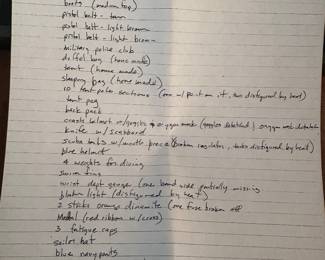 boots (medium top)
pistol belt - tan
pistol belt - light brown
pistol belt - light brown
military police club
duffel bag (home made)
tent (home made)
sleeping bag (home made)
10 tent pole sections (one w/ point on it, two disfigured by heat)
tent peg
back pack
crash helmet w/goggles & oxygen mask (goggles detatched) oxygen mask detatched
knife w/ scabbard
scuba tanks w/mouth piece (broken regulator, tanks disfigured by heat)
blue helmet
4 weights for diving
swim fins
wrist depth gauge (one band side partially missing
blinker light (disfigured by heat)
2 sticks orange dinamite (one fuse broken off
Medal (red ribbon w/cross)
3 fatigue caps
sailor hat
blue navy pants